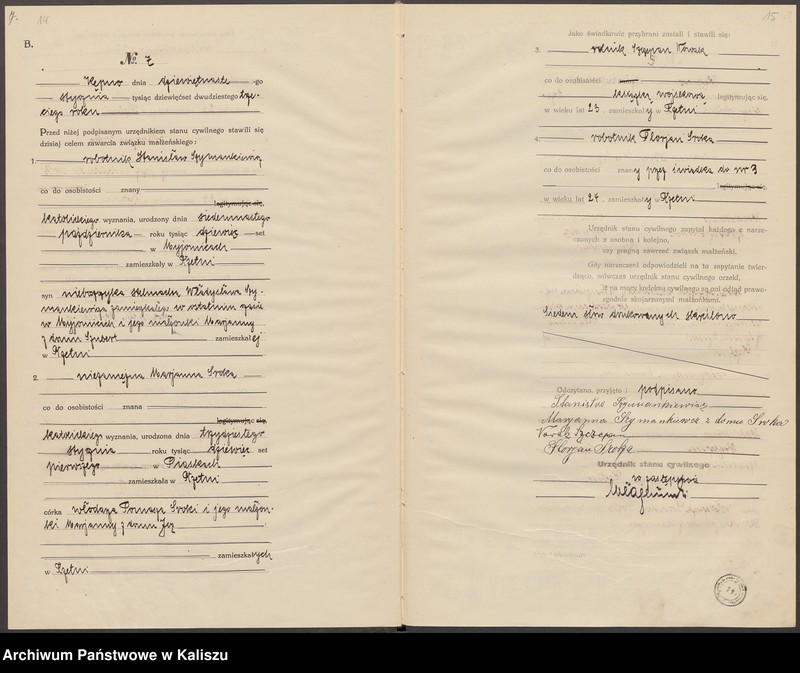 7.
14
B.
No. 7
Kępno dnia dziewiętnaste -go
stycznia tysiąc dziewięćset dwudziestego trze-
ciego roku
Przed niżej podpisanym urzędnikiem stanu cywilnego stawili się
dzisiaj celem zawarcia związku małżeńskiego:
1. robotnik Stanisław Szymankiewicz
co do osobistości znany
legitymując się,
katolickiego wyznania, urodzony dnia siedemnastego
października roku tysiąc dziewięć -set
w Myjomicach
zamieszkały w Rzetni
syn nieboszczyka Władysława Szy-
mankiewicza zamieszkałego w ostatnim czasie
w Myjomicach i jego małżonki Marjanny
z domu zamieszkałej
w Rzetni
2. niezamężna Marjanna Sroka
co do osobistości znana
legitymując się,
katolickiego wyznania, urodzona dnia trzydziestego
stycznia roku tysiąc dziewięć set
pierwszego w Piaskach
zamieszkała w Rzetni
córka włodarza Tomasza Sroki i jego małżon-
ki Marjanny z domu
zamieszkałych
w Rzetni
15
Jako świadkowie przybrani zostali i stawili się:
3. rolnik Szczepan Nowak
co do osobistości
książką wojskową legitymując się,
w wieku lat 23 zamieszkały w Rzetni
4. robotnik Florjan Sroka
co do osobistości znany przez świadka do nr 3
legitymując się,
w wieku lat 24 zamieszkały w Rzetni
Urzędnik stanu cywilnego zapytał każdego z narze-
czonych z osobna i kolejno,
czy pragną zawrzeć związek małżeński.
Gdy narzeczeni odpowiedzieli na to zapytanie twier-
dząco, wówczas urzędnik stanu cywilnego orzekł,
iż na mocy kodeksu cywilnego są oni odtąd prawo-
zgodnie skojarzonymi małżonkami.
Siedem słów drukowanych skreślono
Odczytano, przyjęto i podpisano
Stanisław Szymankiewicz
Maryanna Szymankiewicz z domu Sroka
Szczepan
Florjan Sroka
Urzędnik stanu cywilnego
w zastępstwie
Archiwum Państwowe w Kaliszu